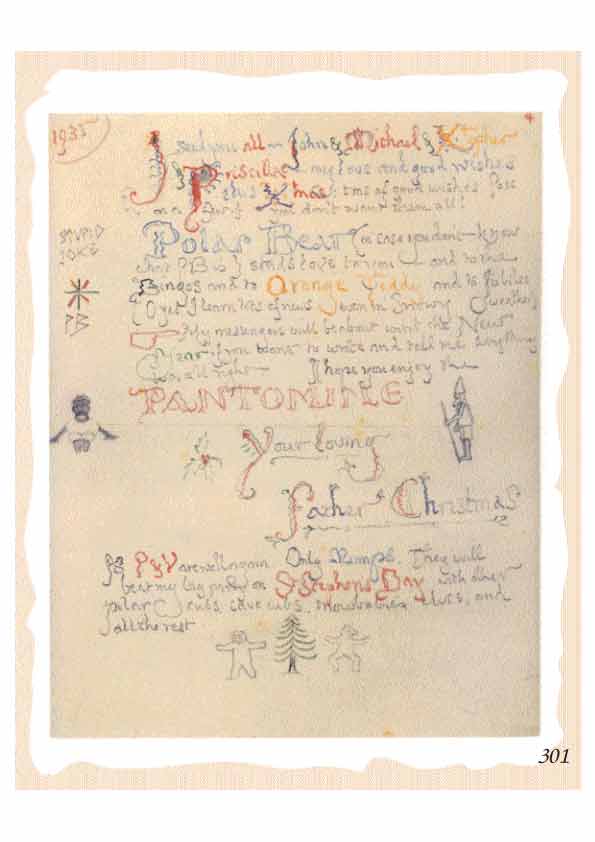 1935
4
I send you all — John & Michael & Xtopher
& Priscilla — my love and good wishes
this Xmas: tons of good wishes. Pass
on a few if you don't want them all!
STUPID
JOKE
PB
Polar Bear (in case you don't know
what PB is) sends love to you — and to the
Bingos and to Orange Teddy and to Jubilee
(O yes I learn lots of news even in Snowy Weather)
My messengers will be about until the New
Year if you want to write and tell me everything
was all right. I hope you enjoy the
PANTOMINE
Your loving
Father Christmas
P & V are well again. Only Mumps. They will
be at my big party on St Stephens Day with other
polar cubs, cave cubs, snowbabies, elves, and
all the rest
301